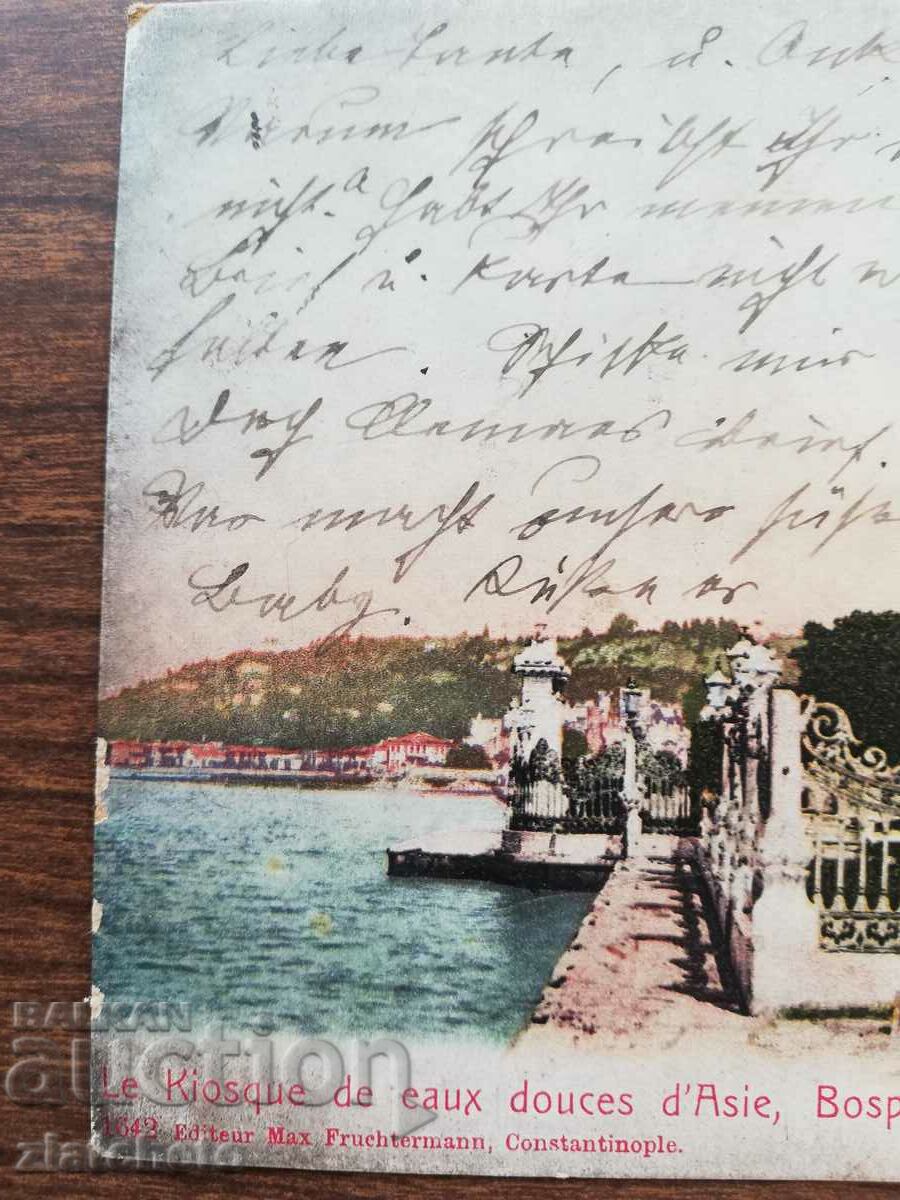 Liebe Tante, u. Onk
Warum schreibt Ihr
nicht. Habt Ihr meinen
Brief u. Karte nicht
halten. Schicke mir
Doch Clemaes Brief.
Was macht unsere süße
Baby. Küße
Le Kiosque de eaux douces d'Asie, Bosp
1642 Editeur Max Fruchtermann, Constantinople.
BALKAN
auction
zlatcholo